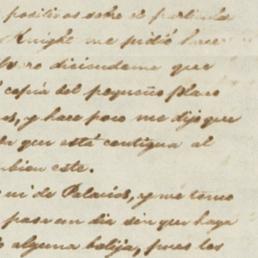 positivos sobre el particular
Knight me pidió hace
diciendome que
copia del pequeño plano
y hace poco me dijo que
que está contigua al
este.
de Palacios, y me tomo
pasa un dia sin que haya
alguna balija, pues los